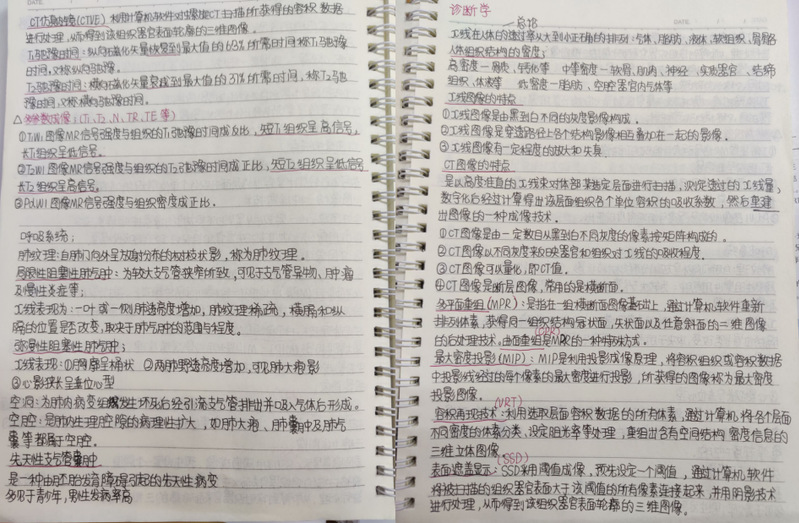 CT仿真内镜(CTVE) 利用计算机软件对螺旋CT扫描所获得的容积数据
进行处理,从而得到该组织器官表面轮廓的三维图像。
T₁弛豫时间:纵向磁化矢量恢复到最大值的63%所需时间称T₁弛豫
时间,又称纵向弛豫。
T₂弛豫时间:横向磁化矢量衰减到最大值的37%所需时间,称T₂弛
豫时间,又称横向弛豫时间。
△多参数成像:(T₁、T₂、N、TR、TE等)
①T₁WI图像MR信号强度与组织的T₁弛豫时间成反比,短T₁组织呈高信号,
长T₁组织呈低信号。
②T₂WI图像MR信号强度与组织的T₂弛豫时间成正比,短T₂组织呈低信号
长T₂组织呈高信号。
③PdWI图像MR信号强度与组织密度成正比。
呼吸系统:
肺纹理:自肺门向外呈放射分布的树枝状影,称为肺纹理。
局限性阻塞性肺气肿:为较大支气管狭窄所致,可见于支气管异物、肿瘤
及慢性炎症等;
X线表现为:一叶或一侧肺透亮度增加,肺纹理稀疏,横膈和纵
膈的位置是否改变,取决于肺气肿的范围与程度。
弥漫性阻塞性肺气肿:
X线表现:①胸廓呈桶状 ②两肺野透亮度增加,可见肺大疱影
③心影狭长呈垂位心型
空洞:为肺内病变组织发生坏死后经引流支气管排出并吸入气体后形成。
空腔:是肺内生理腔隙的病理性扩大,如肺大疱、肺囊肿及肺气
囊等都属于空腔。
先天性支气管囊肿
是一种由胚胎发育障碍引起的先天性病变
多见于青少年,男性发病率高
诊断学
一总论
X线在人体的透过率从大到小正确的排列:气体、脂肪、液体、软组织、骨骼
人体组织结构的密度:
高密度—骨皮、钙化等 中等密度—软骨、肌肉、神经、实质器官、结缔
组织、体液等 低密度—脂肪、空腔器官内气体等
X线图像的特点
①X线图像是由黑到白不同的灰度影像构成。
②X线图像是穿透路径上各个结构影像相互叠加在一起的影像。
③X线图像有一定程度的放大和失真
CT图像的特点
是以高度准直的X线束对体部某指定层面进行扫描,测定透过的X线量,
数字化后经过计算得出该层面组织各个单位容积的吸收系数,然后重建
出图像的一种成像技术。
①CT图像是由一定数目从黑到白不同灰度的像素按矩阵构成的。
②CT图像以不同灰度来反映器官和组织对X线的吸收程度。
③CT图像可以量化,即CT值。
④CT图像是断层图像,常用的是横断面。
多平面重组(MPR):是指在一组横断面图像基础上,通过计算机软件重新
排列体素,获得同一组织结构冠状面,矢状面以及任意斜面的二维图像
的后处理技术。曲面重组(CPR)是MPR的一种特殊方式。
最大密度投影(MIP):MIP是利用投影成像原理,将容积组织或容积数据
中投影线经过的每个像素的最大密度进行投影,所获得的图像称为最大密度
投影图像。
(VRT)
容积再现技术:利用选取层面容积数据的所有体素,通过计算机将各个层面
不同密度的体素分类、设定阻光率等处理,重组出含有空间结构、密度信息的
三维立体图像。
(SSD)
表面遮盖显示:SSD采用阈值成像,预先设定一个阈值,通过计算机软件
将被扫描的组织器官表面大于该阈值的所有像素连接起来,并用阴影技术
进行处理,从而得到该组织器官表面轮廓的三维图像。